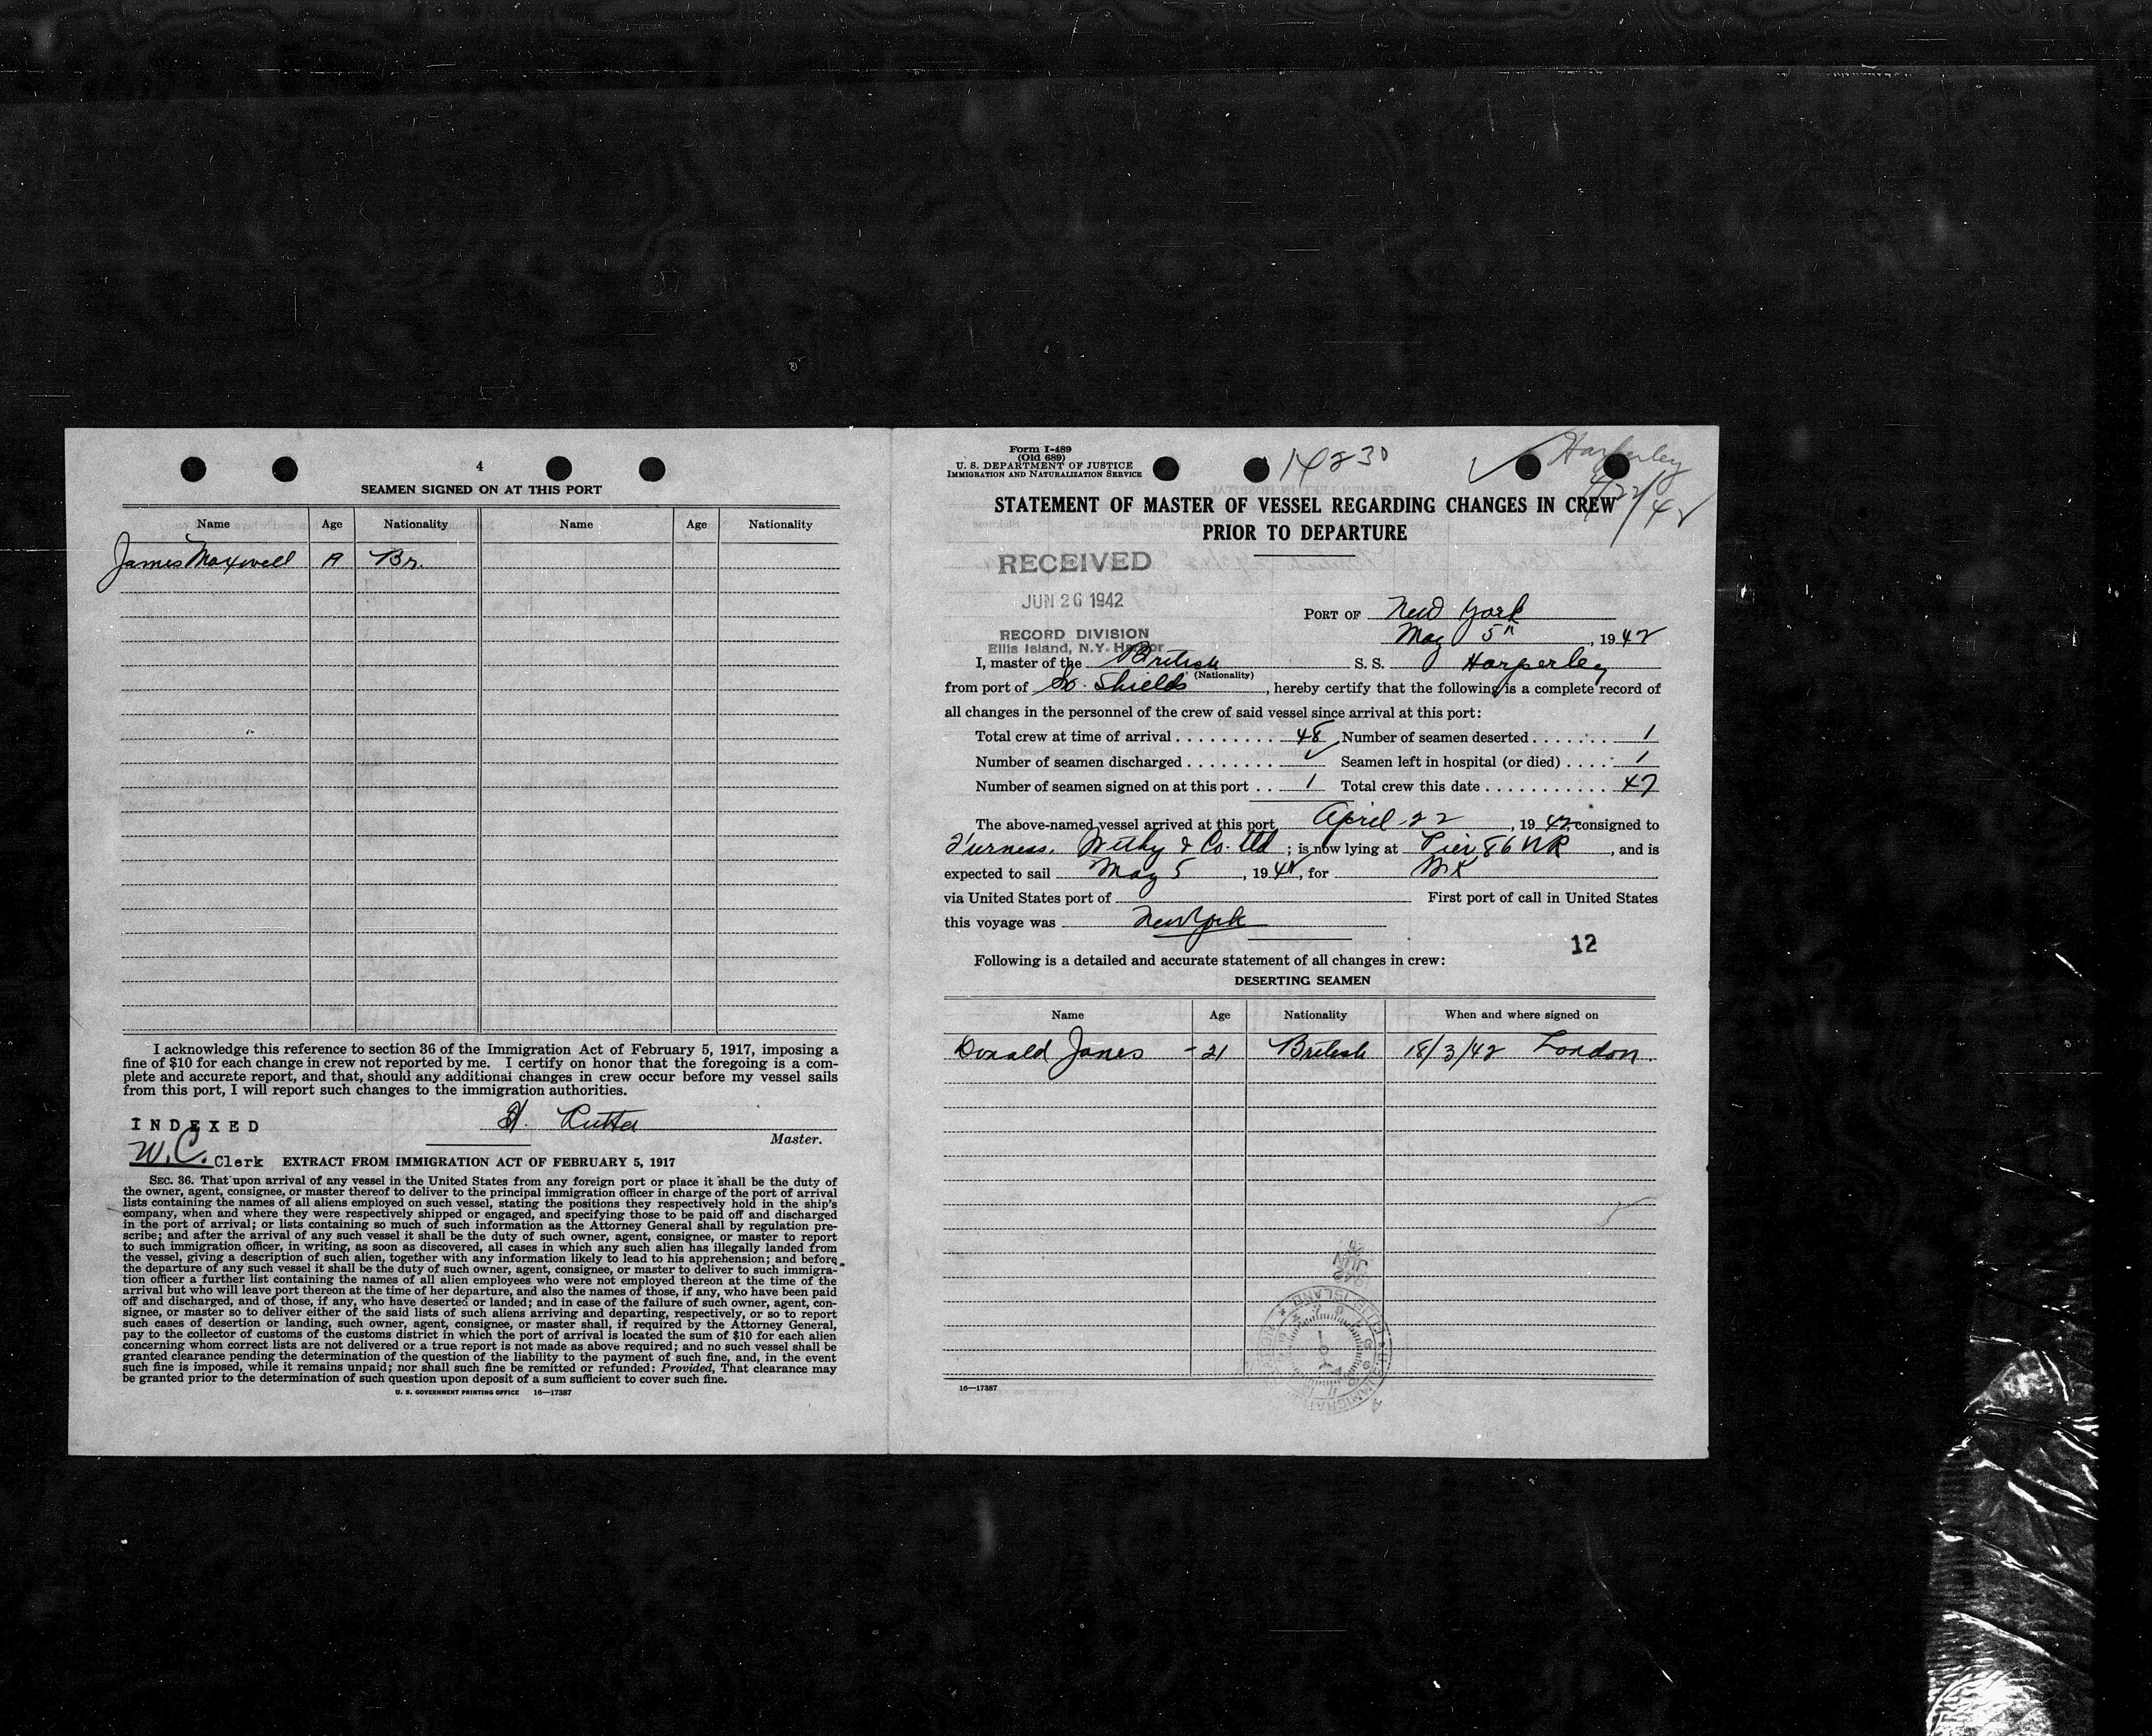 4
SEAMEN SIGNED ON AT THIS PORT
Name Age Nationality Name Age Nationality
James Maxwell A Br.
I acknowledge this reference to section 36 of the Immigration Act of February 5, 1917, imposing a
fine of $10 for each change in crew not reported by me. I certify on honor that the foregoing is a com-
plete and accurate report, and that, should any additional changes in crew occur before my vessel sails
from this port, I will report such changes to the immigration authorities.
INDEXED
H. Rutter
Master.
W.C. Clerk
EXTRACT FROM IMMIGRATION ACT OF FEBRUARY 5, 1917
SEC. 36. That upon arrival of any vessel in the United States from any foreign port or place it shall be the duty of
the owner, agent, consignee, or master thereof to deliver to the principal immigration officer in charge of the port of arrival
lists containing the names of all aliens employed on such vessel, stating the positions they respectively hold in the ship's
company, when and where they were respectively shipped or engaged, and specifying those to be paid off and discharged
in the port of arrival; or lists containing so much of such information as the Attorney General shall by regulation pre-
scribe; and after the arrival of any such vessel it shall be the duty of such owner, agent, consignee, or master to report
to such immigration officer, in writing, as soon as discovered, all cases in which any such alien has illegally landed from
the vessel, giving a description of such alien, together with any information likely to lead to his apprehension; and before
the departure of any such vessel it shall be the duty of such owner, agent, consignee, or master to deliver to such immigra-
tion officer a further list containing the names of all alien employees who were not employed thereon at the time of the
arrival but who will leave port thereon at the time of her departure, and also the names of those, if any, who have been paid
off and discharged, and of those, if any, who have deserted or landed; and in case of the failure of such owner, agent, con-
signee, or master so to deliver either of the said lists of such aliens arriving and departing, respectively, or so to report
such cases of desertion or landing, such owner, agent, consignee, or master shall, if required by the Attorney General,
pay to the collector of customs of the customs district in which the port of arrival is located the sum of $10 for each alien
concerning whom correct lists are not delivered or a true report is not made as above required; and no such vessel shall be
granted clearance pending the determination of the question of the liability to the payment of such fine, and, in the event
such fine is imposed, while it remains unpaid; nor shall such fine be remitted or refunded: Provided, That clearance may
be granted prior to the determination of such question upon deposit of a sum sufficient to cover such fine.
U. S. GOVERNMENT PRINTING OFFICE 16—17387
Form I-489
(Old 689)
U. S. DEPARTMENT OF JUSTICE
IMMIGRATION AND NATURALIZATION SERVICE
14230
Harperley
4/22/42
STATEMENT OF MASTER OF VESSEL REGARDING CHANGES IN CREW
PRIOR TO DEPARTURE
RECEIVED
JUN 26 1942
RECORD DIVISION
Ellis Island, N.Y. Harbor
PORT OF New York
May 5th, 1942
I, master of the British S. S. Harperley
(Nationality)
from port of So. Shields, hereby certify that the following is a complete record of
all changes in the personnel of the crew of said vessel since arrival at this port:
Total crew at time of arrival . . . . . . . . . . 48 Number of seamen deserted . . . . . . . 1
Number of seamen discharged . . . . . . . . ✓ Seamen left in hospital (or died) . . . . 1
Number of seamen signed on at this port . . 1 Total crew this date . . . . . . . . . . . . 47
The above-named vessel arrived at this port April 22, 1942, consigned to
Furness, Withy & Co. Ltd; is now lying at Pier 86 NR, and is
expected to sail May 5, 1942, for UK
via United States port of First port of call in United States
this voyage was New York
12
Following is a detailed and accurate statement of all changes in crew:
DESERTING SEAMEN
Name Age Nationality When and where signed on
Donald Jones - 21 British 18/3/42 London.
16—17387